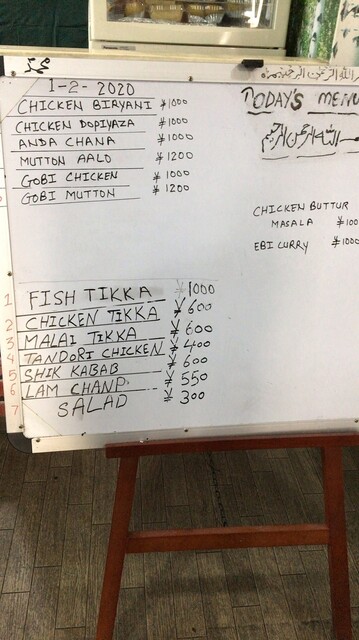 1-2-2020
CHICKEN BIRYANI ¥1000
CHICKEN DOPIYAZA ¥1000
ANDA CHANA ¥1000
MUTTON AALO ¥1200
GOBI CHICKEN ¥1000
GOBI MUTTON ¥1200
TODAY'S MENU
بسم الله الرحمن الرحيم
CHICKEN BUTTUR
MASALA ¥100
EBI CURRY ¥1000
1 FISH TIKKA ¥1000
2 CHICKEN TIKKA ¥600
3 MALAI TIKKA ¥600
4 TANDORI CHICKEN ¥400
5 SHIK KABAB ¥600
6 LAM CHANP ¥550
7 SALAD ¥300